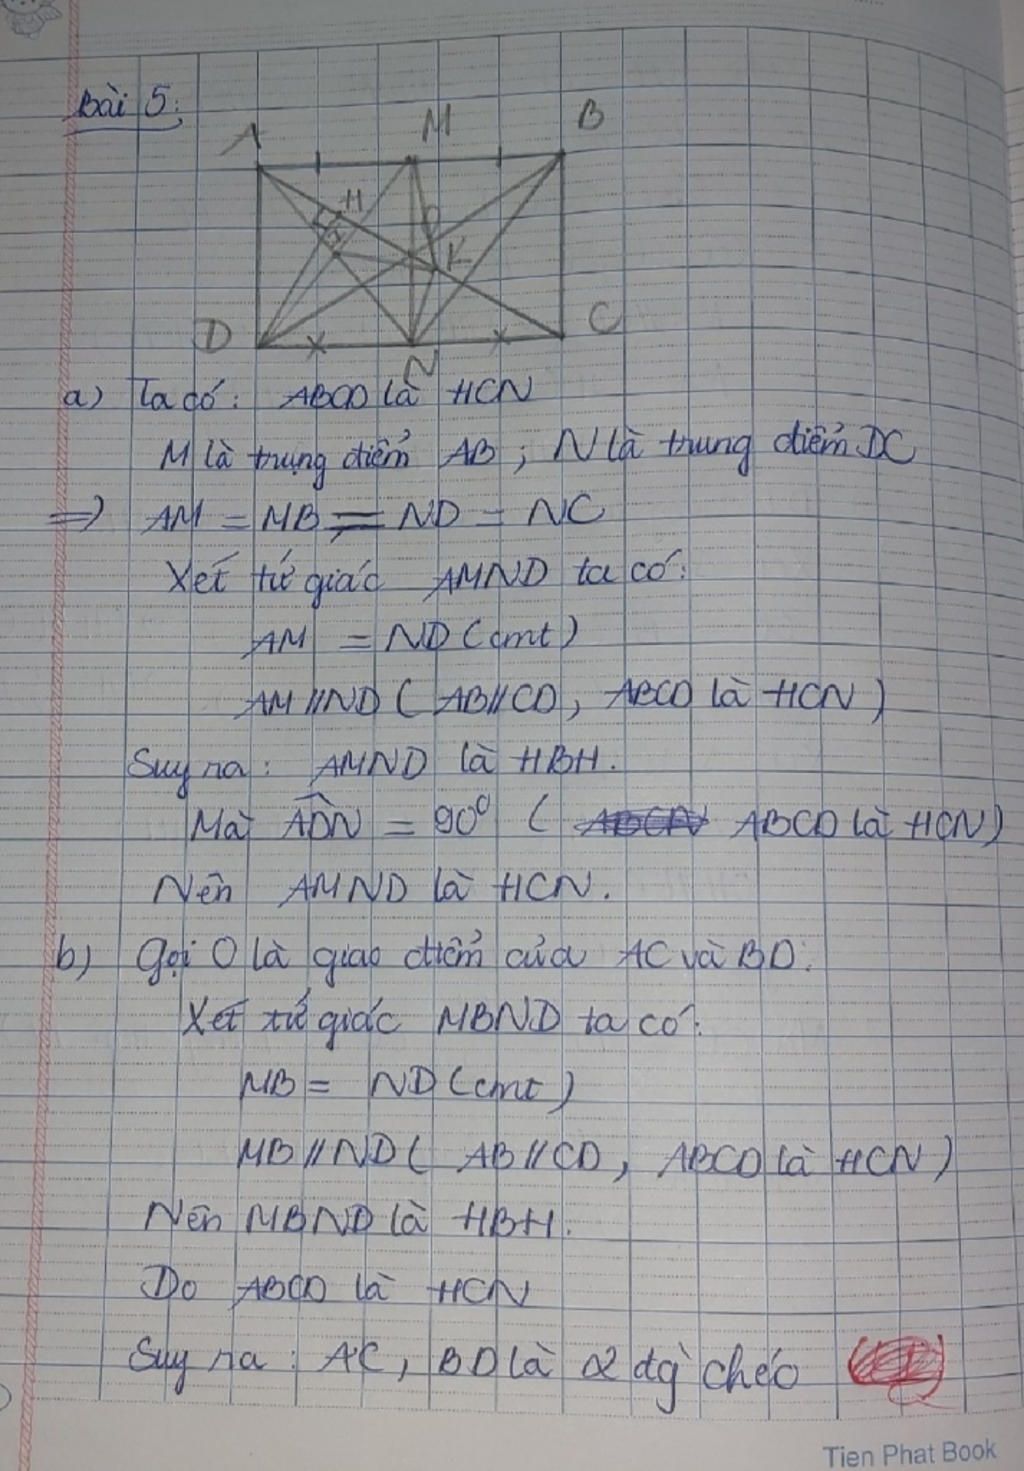 Bài 5:
A M B
H
O
I K
D N C
a) Ta có: ABCD là HCN
M là trung điểm AB; N là trung điểm DC
=> AM = MB = ND = NC
Xét tứ giác AMND ta có:
AM = ND (cmt)
AM // ND ( AB // CD, ABCD là HCN )
Suy ra: AMND là HBH.
Mà ADN = 90° ( ABCD là HCN)
Nên AMND là HCN.
b) Gọi O là giao điểm của AC và BD.
Xét tứ giác MBND ta có:
MB = ND (cmt)
MB // ND ( AB // CD, ABCD là HCN )
Nên MBND là HBH.
Do ABCD là HCN
Suy ra: AC, BD là 2 đg chéo
Tien Phat Book